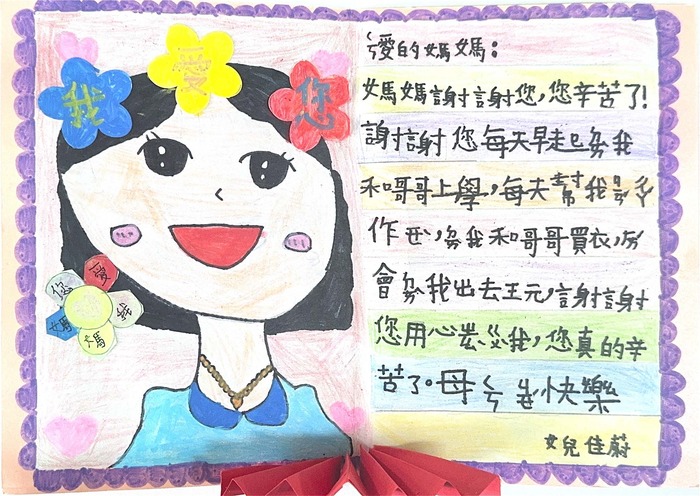 我 愛 您
您 愛 我 媽 媽
ㄑ愛的媽媽:
媽媽謝謝您,您辛苦了!
謝謝您每天早起 我
和哥哥上學,每天幫我
作 , 我和哥哥買衣,
會 我出去王元,謝謝
您用心 我,您真的辛
苦了。母ㄑ 快樂
女兒佳蔚